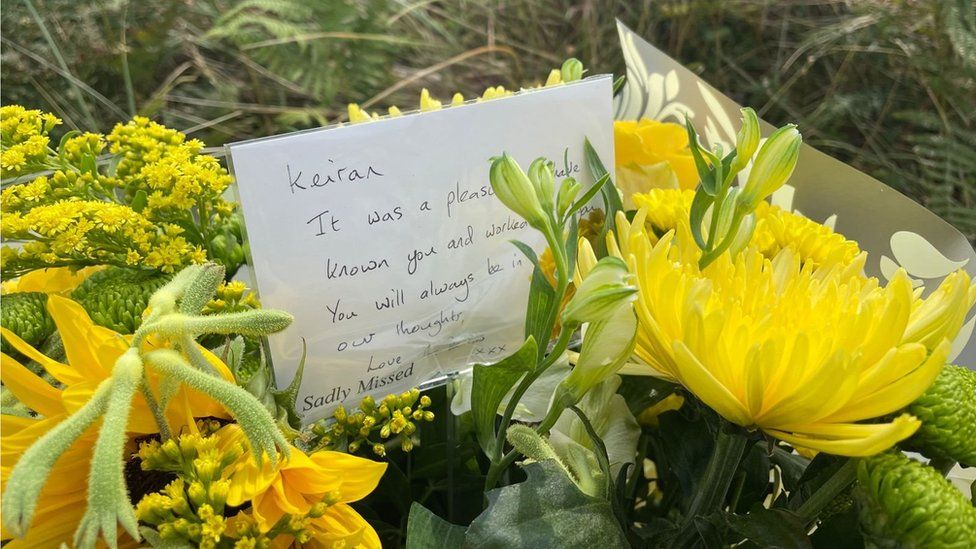 Keiran
It was a pleas
known you and worked
You will always be in
our thoughts,
Love xxx
Sadly Missed